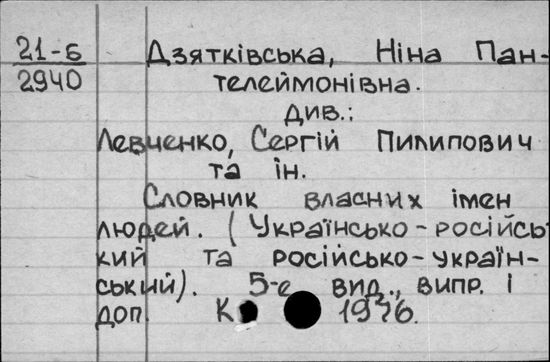 21-Б
2940
Дзятківська, Ніна Пан-
телеймонівна.
див.:
Левченко, Сергій Пилипович
та ін.
Словник власних імен
людей. (Українсько-російсь
кий та російсько-україн-
ський). 5-е вид., випр. і
доп. К 1976.